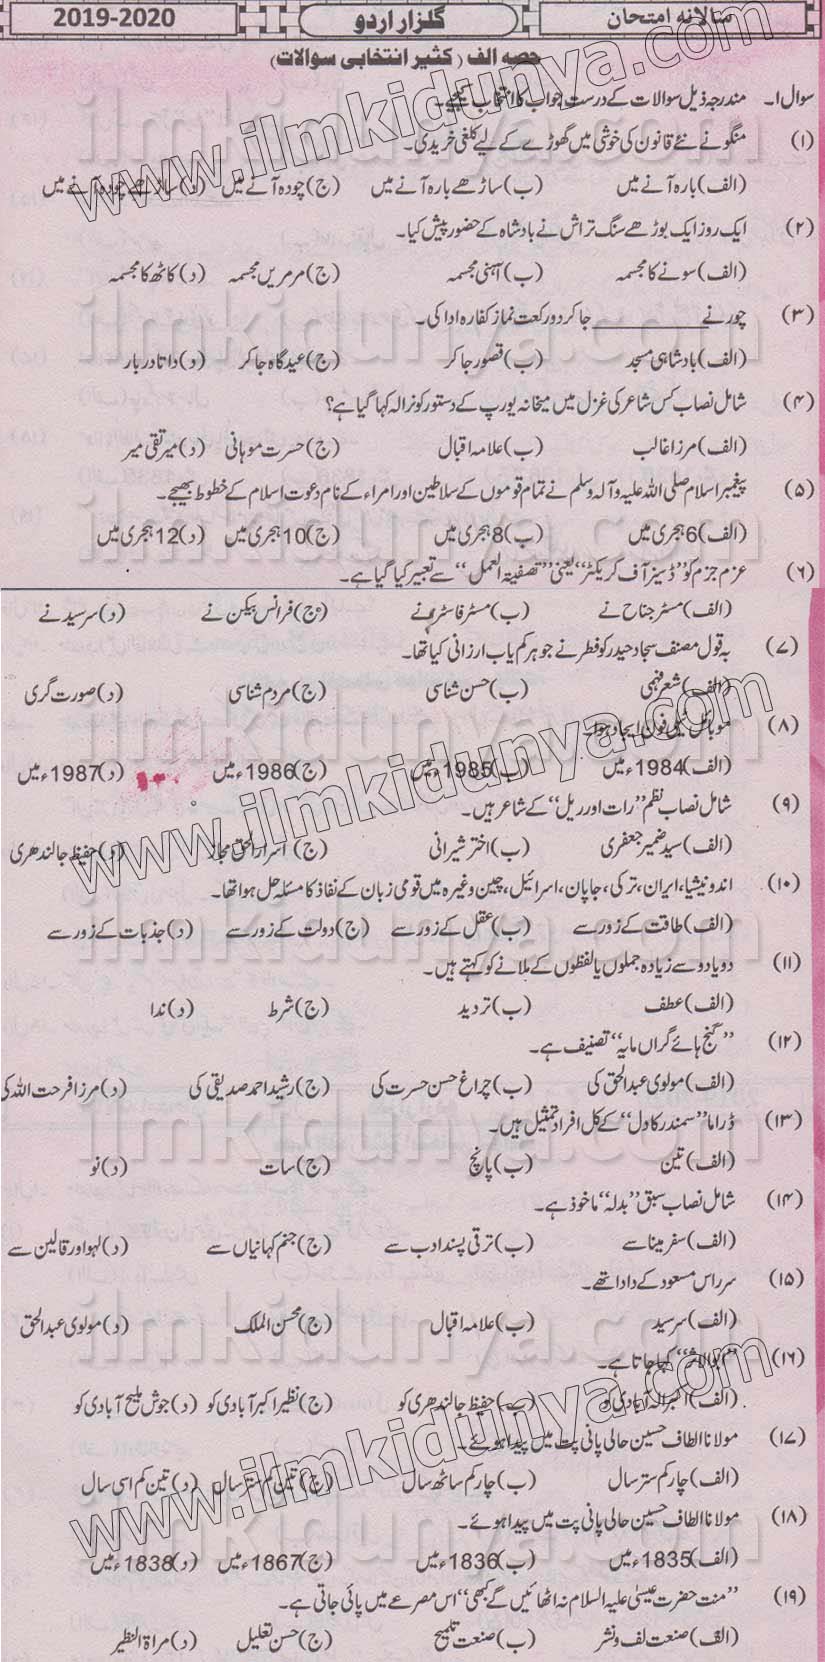 سالانہ امتحان گلزار اردو 2019-2020
حصہ الف (کثیر انتخابی سوالات)
سوال ۱۔ مندرجہ ذیل سوالات کے درست جواب کا انتخاب کیجیے۔
(۱) منگو نے نئے قانون کی خوشی میں گھوڑے کے لیے کلغی خریدی۔
(الف) بارہ آنے میں (ب) ساڑھے بارہ آنے میں (ج) چودہ آنے میں (د) ساڑھے چودہ آنے میں
(۲) ایک روز ایک بوڑھے سنگ تراش نے بادشاہ کے حضور پیش کیا۔
(الف) سونے کا مجسمہ (ب) آہنی مجسمہ (ج) مرمریں مجسمہ (د) کاٹھ کا مجسمہ
(۳) چور نے ____________ جا کر دو رکعت نماز کفارہ ادا کی۔
(الف) بادشاہی مسجد (ب) قصور جا کر (ج) عید گاہ جا کر (د) داتا دربار
(۴) شامل نصاب کس شاعر کی غزل میں میخانہ یورپ کے دستور کو نرالہ کہا گیا ہے؟
(الف) مرزا غالب (ب) علامہ اقبال (ج) حسرت موہانی (د) میر تقی میر
(۵) پیغمبر اسلام صلی اللہ علیہ و آلہ وسلم نے تمام قوموں کے سلاطین اور امراء کے نام دعوت اسلام کے خطوط بھیجے۔
(الف) 6 ہجری میں (ب) 8 ہجری میں (ج) 10 ہجری میں (د) 12 ہجری میں
(۶) عزم جزم کو "ڈسیز آف کریکٹر" یعنی "تصفیۃ العمل" سے تعبیر کیا گیا ہے۔
(الف) مسٹر جناح نے (ب) مسٹر فاسٹر نے (ج) فرانس بیکن نے (د) سرسید نے
(۷) بہ قول مصنف سجاد حیدر کو فطر نے جو ہر کم یاب ارزانی کیا تھا۔
(الف) شعر فہمی (ب) حسن شناسی (ج) مردم شناسی (د) صورت گری
(۸) موبائل ٹیلی فون ایجاد ہوا۔
(الف) 1984ء میں (ب) 1985ء میں (ج) 1986ء میں (د) 1987ء میں
(۹) شامل نصاب نظم "رات اور ریل" کے شاعر ہیں۔
(الف) سید ضمیر جعفری (ب) اختر شیرانی (ج) اسرار الحق مجاز (د) حفیظ جالندھری
(۱۰) انڈونیشیا، ایران، ترکی، جاپان، اسرائیل، چین وغیرہ میں قومی زبان کے نفاذ کا مسئلہ حل ہوا تھا۔
(الف) طاقت کے زور سے (ب) عقل کے زور سے (ج) دولت کے زور سے (د) جذبات کے زور سے
(۱۱) دو یا دو سے زیادہ جملوں یا لفظوں کے ملانے کو کہتے ہیں۔
(الف) عطف (ب) تردید (ج) شرط (د) ندا
(۱۲) "گنج ہائے گراں مایہ" تصنیف ہے۔
(الف) مولوی عبدالحق کی (ب) چراغ حسن حسرت کی (ج) رشید احمد صدیقی کی (د) مرزا فرحت اللہ کی
(۱۳) ڈراما "سمندر کا دل" کے کل افراد تمثیل ہیں۔
(الف) تین (ب) پانچ (ج) سات (د) نو
(۱۴) شامل نصاب سبق "بدلہ" ماخوذ ہے۔
(الف) سفر مینا سے (ب) ترقی پسند ادب سے (ج) جنم کہانیاں سے (د) لہو اور قالین سے
(۱۵) سر راس مسعود کے دادا تھے۔
(الف) سرسید (ب) علامہ اقبال (ج) محسن الملک (د) مولوی عبدالحق
(۱۶) "ابوالاثر" کہا جاتا ہے۔
(الف) اکبر الہ آبادی کو (ب) حفیظ جالندھری کو (ج) نظیر اکبر آبادی کو (د) جوش ملیح آبادی کو
(۱۷) مولانا الطاف حسین حالی پانی پت میں پیدا ہوئے۔
(الف) چار کم ستر سال (ب) چار کم ساٹھ سال (ج) تین کم ستر سال (د) تین کم اسی سال
(۱۸) مولانا الطاف حسین حالی پانی پت میں پیدا ہوئے۔
(الف) 1835ء میں (ب) 1836ء میں (ج) 1867ء میں (د) 1838ء میں
(۱۹) "منت حضرت عیسیٰ علیہ السلام نہ اٹھائیں گے کبھی" اس مصرعے میں پائی جاتی ہے۔
(الف) صنعت لف و نشر (ب) صنعت تلمیح (ج) حسن تعلیل (د) مراۃ النظیر
www.ilmkidunya.com
www.ilmkidunya.com
www.ilmkidunya.com
ilmkidunya.com